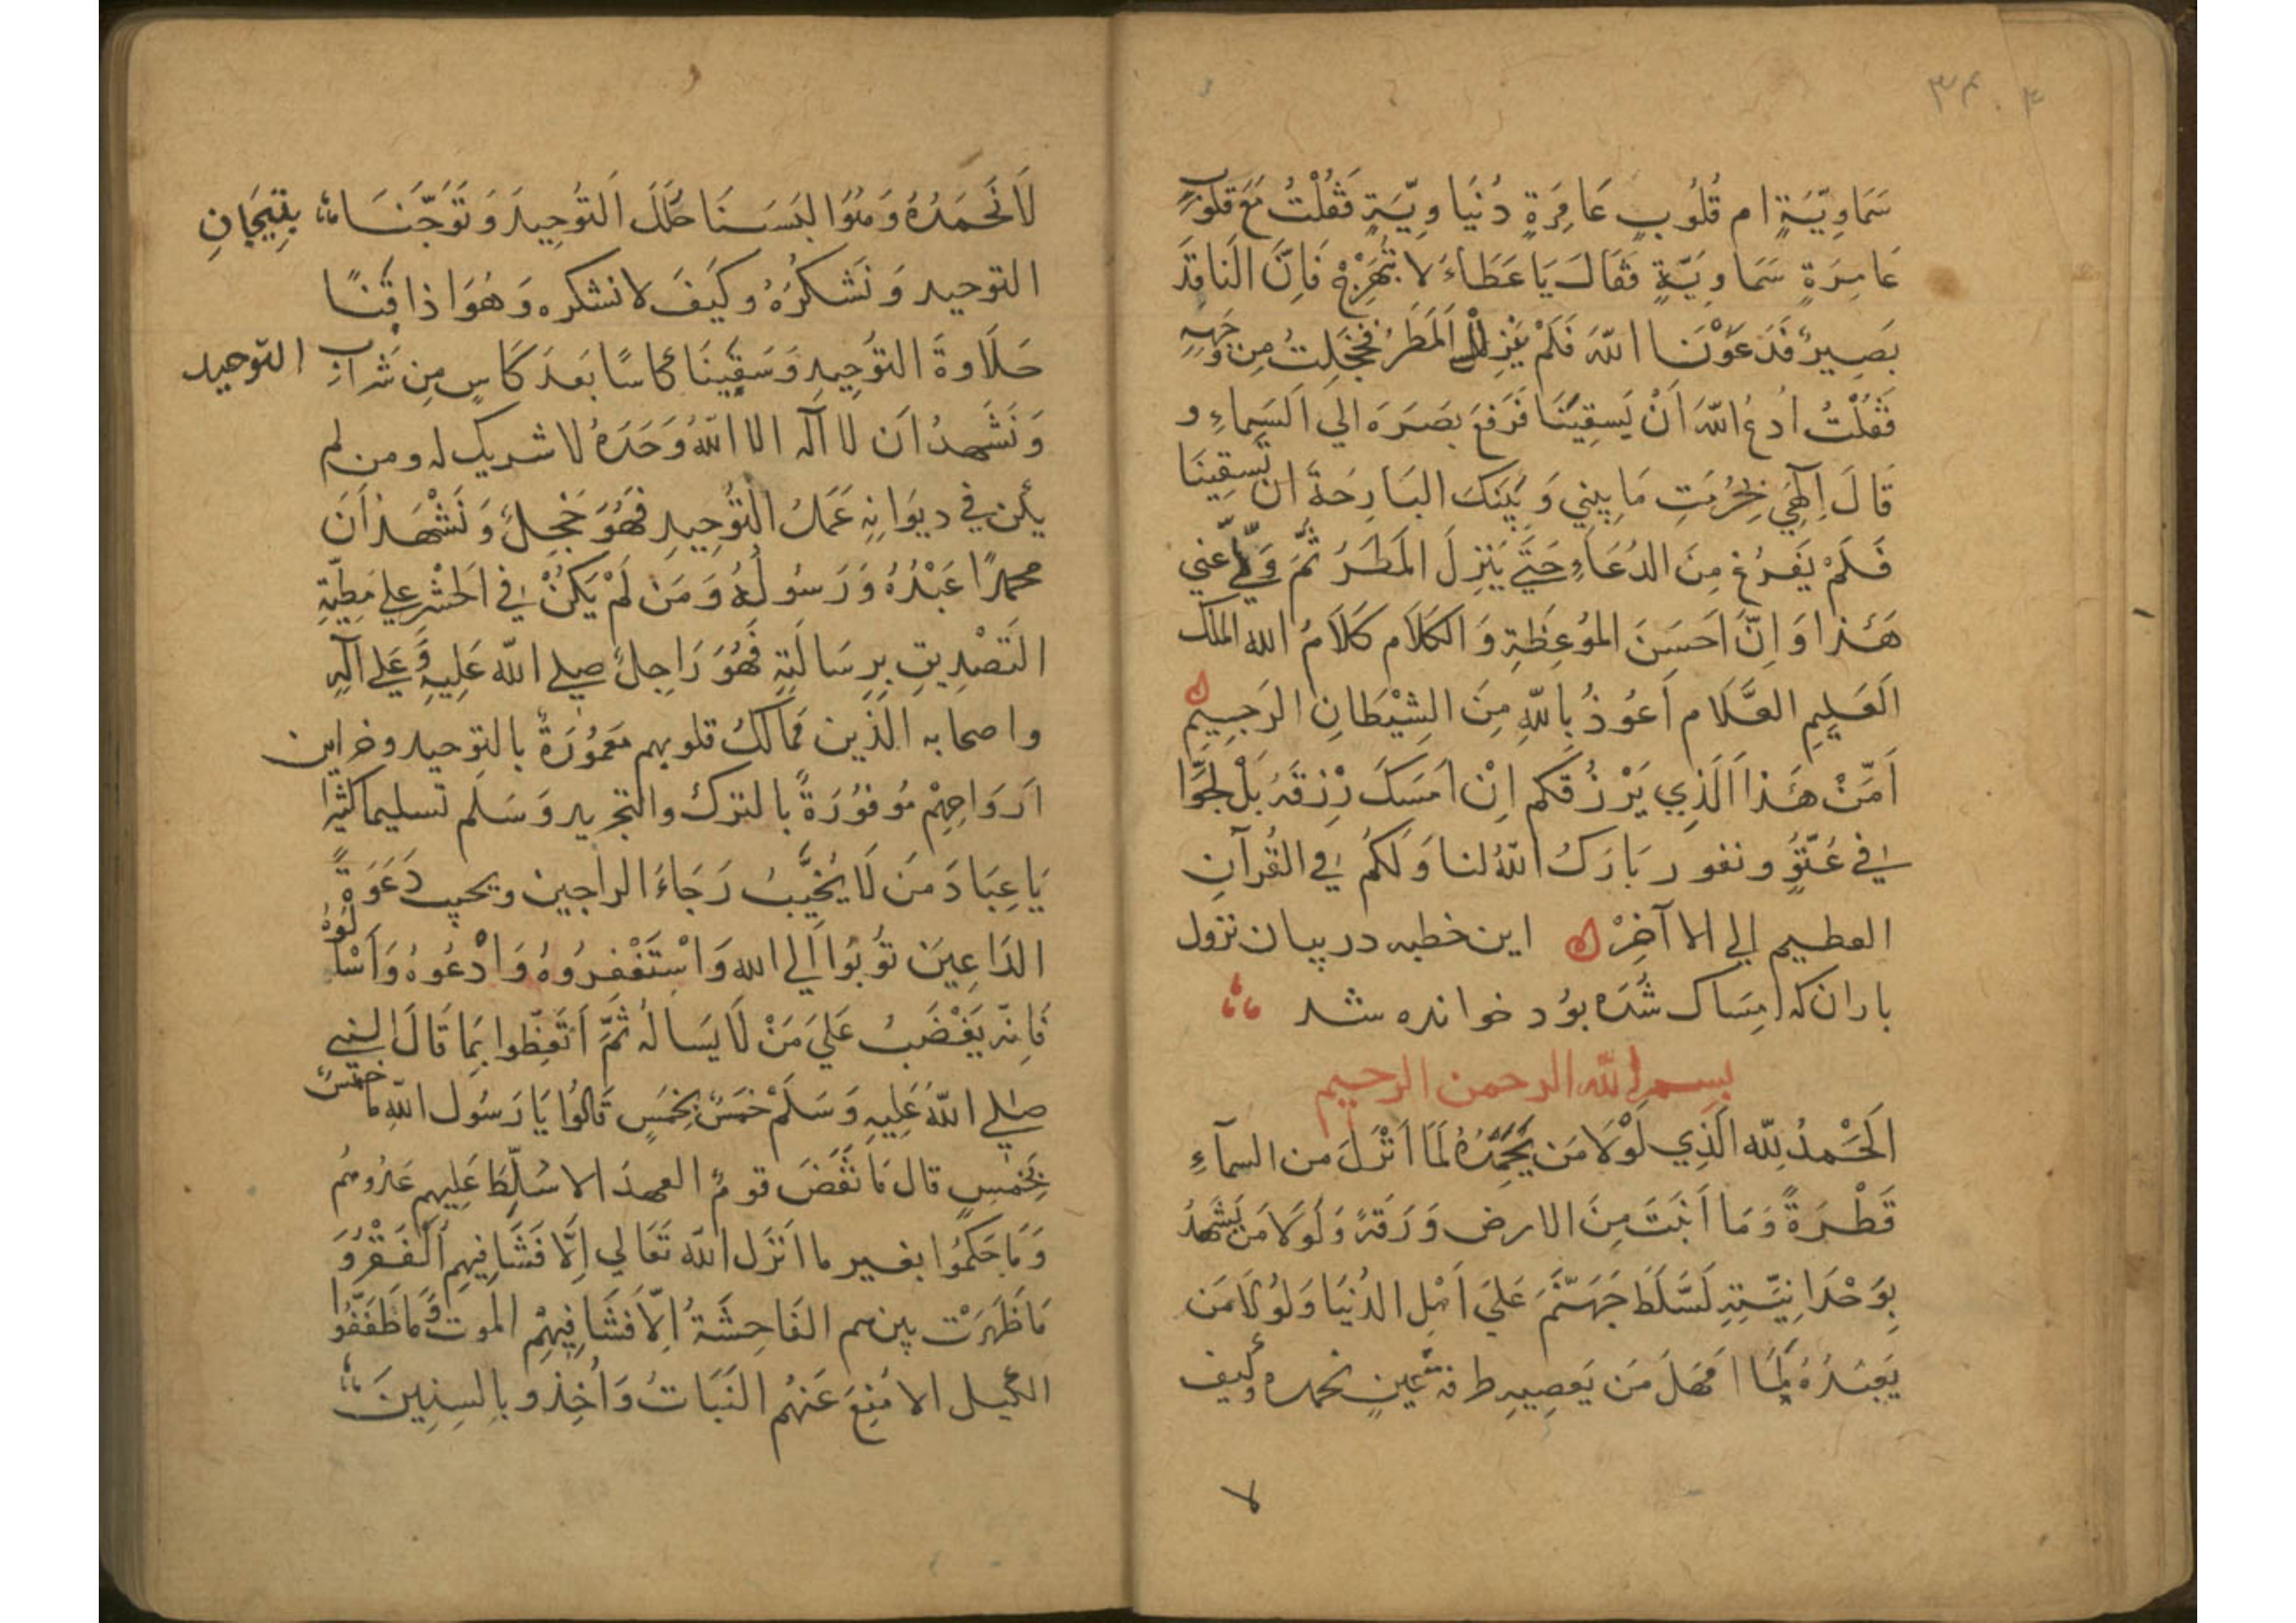 ۳۴
سَمَاوِيَّةٍ ام قُلُوبٍ عَامِرَةٍ دُنيَاوِيَّةٍ فَقُلْتُ مَعَ قلُوبٍ
عَامِرَةٍ سَمَاوِيَّةٍ فَقَالَ يَا عَطَاءُ لا تَبَهْرَجْ فَاِنَّ النَاقِدَ
بَصِيرٌ فَدَعَوْنَا اللّه فَلَمْ يَنْزِلْ المَطَرُ فخَجَلتُ مِن وَجْهِهِ
فَقُلْتُ ادعُ اللّهَ اَنْ يَسقِيَنَا فَرَفَعَ بَصَرَهَ الي السَماءِ و
قَالَ اِلٓهِي بِحُرْمَتِ مَا بيني وَ بَيْنَكَ البَارِحَةَ ان تَسقِينَا
فَلَمْ يَفرُغ مِنَ الدُعَاءِ حَتَّي يَنزِلَ المَطَرُ ثُمَّ وَلّي عَنّي
هَذا وَ اِنَّ اَحسَنَ الموُعِظَةِ وَ الكَلَام كَلَامُ الله الملك
العَلِيمِ العَّلَام اَعُوذُ بِاللّهِ مِنَ الشِيْطَانِ الرَجِيمِ
اَمَّنْ هَذا الَذِي يَرْزُقكم اِنْ امَسَكَ رْزِقَهُ بَلْ لجَوّا
في عُتّوٍ ونفور بَارَكَ اللّهُ لنا وَ لَكُم في القُرآنِ
العظيم الي الا آخِرْ اين خطبه در بيان نزول
باران كه امِسَاك شُده بوُد خوانده شد
بسم اللّه الرحمن الرحيم
الحَمْدُ لِلّه الَذِي لَوْلَا مَن يَحمَدُهُ لَمَا اَنْزَلَ من السمآءِ
قَطْرَةً وَ مَا اَنبَتَ مِنَ الارض وَرَقَةً وَ لَولَا مَن يَشهَدُ
بِوَحْدَانِيَّتِهِ لَسَّلَطَ جَهَنَّمَ عَلَي اَهْلِ الدُنيَا وَ لَوُلَا مَن
يَعبُدُهُ لَمَا اَمهَلَ مَن يَعصِيهِ طرفة عَينٍ نحمده وكيف
لا
لَا نَحمَدُهُ وَ هُوَ البَسَنَا حُلَلَ التَوُحِيدَ وَ تَوَجَّنَا بتيجَانِ
التوحيد وَ نَشكُرُهُ وكَيفَ لا نشكره وَ هُوَ اذاقَنَا
حَلَاوةَ التوُحِيدِ وَ سَقَينَا كاسًا بَعدَ كَاسٍ مِن شَرابِ التوحيد
وَ نَشهدُ اَن لا آله الا اللّهُ وَحَدَهُ لا شريك له ومن لم
يكن في ديوَانِهِ عَمَلُ التوُحِيدِ فَهُوَ خَجِلٌ وَ نَشْهَدُ اَنَ
محمدًا عَبْدُهُ وَ رَسُولُهُ وَ مَن لَمْ يَكُنْ في الحْشرِ علي مَطِيّةِ
التَصْدِيقِ بِرِسَالَتِهِ فَهُوَ رَاجِلٌ صلي اللّه عَلِيهِ وَ عَلي آلِهِ
واصحابه الذين مَمالكُ قلوبهم مَعموُرَةٌ بالتوحيد وخزاين
اَروَاحِهِمْ مُوفوُرَةٌ بالترك والتجريد وَ سَلم تسليما كثيرا
يَا عِبَادَ مَن لَا يُخَيِّبُ رَجَاءَ الراجين ويجيب دَعَوَةَ
الدَاعِينَ توُبُوا الي الله وَ اسْتَغْفرُوهُ وَ ادْعُوهُ وَ اَسْالُوهُ
فَاِنّه يَغْضَبُ عَلَي مَنْ لَا يَسَالهُ ثُمَّ اَتَعِّظوا بمَا قَالَ النبي
صلي اللّه عَلِيهِ وَ سَلَمْ خَمسٌ بِخَمسٍ قَالوُا يَا رَسُول اللّه مَا خمسٌ
بِخَمسٍ قال مَا نَقَضَ قومٌ العهدَ الا سُلِّطَ عَلِيهِم عَدُوهُم
وَ مَا حَكموُا بغير ما انَزَل اللّه تَعَالي اِلَّا فَشَا فِيهِم الفَقرُ وَ
مَا ظَهَرَتْ بينهم الفَاحِشَةُ اِلَّا فَشَا فِيهِمْ الموت وَ مَا طَفَّفُوا
الكيل الا مُنِعَ عَنهُم النَبَاتُ وَ اُخِذو بالسِنِينَ